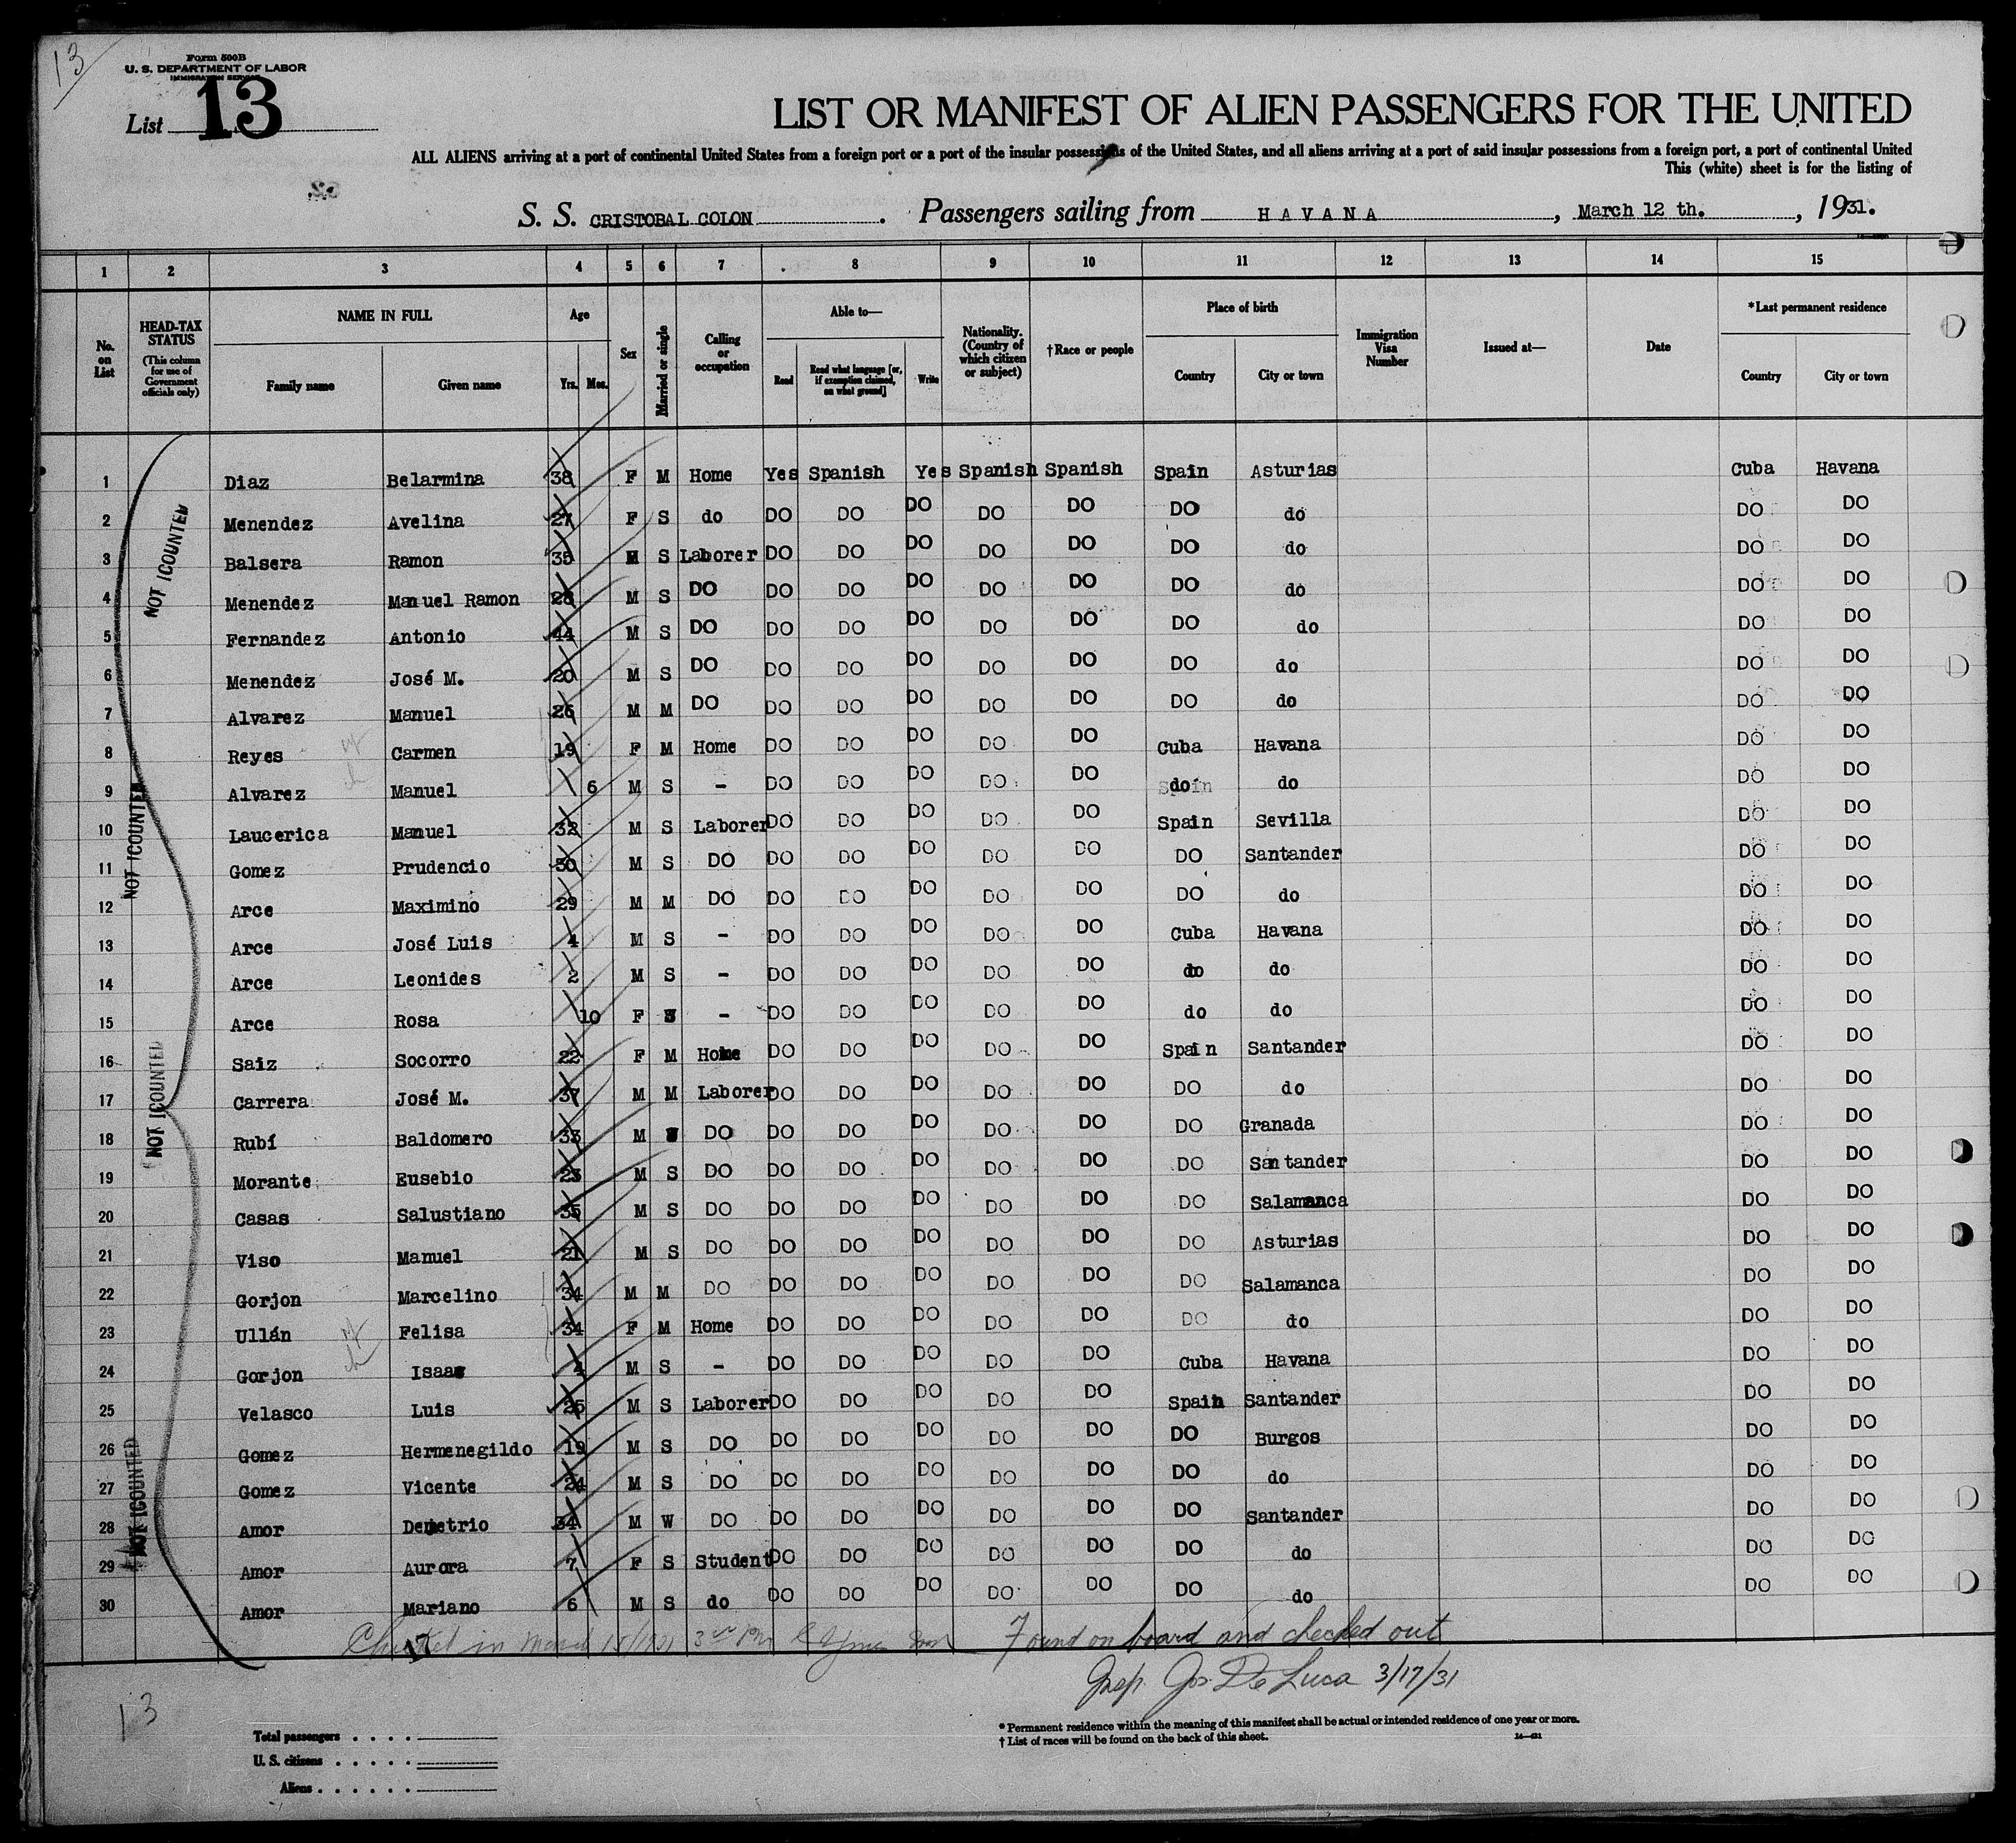 13
Form 500B
U. S. DEPARTMENT OF LABOR
IMMIGRATION SERVICE
List 13
LIST OR MANIFEST OF ALIEN PASSENGERS FOR THE UNITED
ALL ALIENS arriving at a port of continental United States from a foreign port or a port of the insular possessions of the United States, and all aliens arriving at a port of said insular possessions from a foreign port, a port of continental United
This (white) sheet is for the listing of
S. S. CRISTOBAL COLON. Passengers sailing from HAVANA, March 12 th., 1931.
1 2 3 4 5 6 7 8 9 10 11 12 13 14 15
No. on List
HEAD-TAX STATUS (This column for use of Government officials only)
NAME IN FULL
Family name Given name
Age
Yrs. Mos.
Sex
Married or single
Calling or occupation
Able to—
Read Read what language [or, if exemption claimed, on what ground] Write
Nationality. (Country of which citizen or subject)
†Race or people
Place of birth
Country City or town
Immigration Visa Number
Issued at—
Date
*Last permanent residence
Country City or town
1 Diaz Belarmina 38 F M Home Yes Spanish Yes Spanish Spanish Spain Asturias Cuba Havana
2 Menendez Avelina 27 F S do DO DO DO DO DO DO do DO DO
3 Balsera Ramon 35 M S Laborer DO DO DO DO DO DO do DO DO
4 Menendez Manuel Ramon 28 M S DO DO DO DO DO DO DO do DO DO
5 Fernandez Antonio 44 M S DO DO DO DO DO DO DO do DO DO
6 Menendez José M. 20 M S DO DO DO DO DO DO DO do DO DO
7 Alvarez Manuel 26 M M DO DO DO DO DO DO DO do DO DO
8 Reyes Carmen 19 F M Home DO DO DO DO DO Cuba Havana DO DO
9 Alvarez Manuel 6 M S - DO DO DO DO DO do do DO DO
10 Laucerica Manuel 32 M S Laborer DO DO DO DO DO Spain Sevilla DO DO
11 Gomez Prudencio 30 M S DO DO DO DO DO DO DO Santander DO DO
12 Arce Maximino 29 M M DO DO DO DO DO DO DO do DO DO
13 Arce José Luis 4 M S - DO DO DO DO DO Cuba Havana DO DO
14 Arce Leonides 2 M S - DO DO DO DO DO do do DO DO
15 Arce Rosa 10 F S - DO DO DO DO DO do do DO DO
16 Saiz Socorro 22 F M Home DO DO DO DO DO Spain Santander DO DO
17 Carrera José M. 37 M M Laborer DO DO DO DO DO DO do DO DO
18 Rubí Baldomero 33 M DO DO DO DO DO DO DO Granada DO DO
19 Morante Eusebio 23 M S DO DO DO DO DO DO DO Santander DO DO
20 Casas Salustiano 35 M S DO DO DO DO DO DO DO Salamanca DO DO
21 Viso Manuel 21 M S DO DO DO DO DO DO DO Asturias DO DO
22 Gorjon Marcelino 34 M M DO DO DO DO DO DO DO Salamanca DO DO
23 Ullán Felisa 34 F M Home DO DO DO DO DO DO do DO DO
24 Gorjon Isaac 4 M S - DO DO DO DO DO Cuba Havana DO DO
25 Velasco Luis 25 M S Laborer DO DO DO DO DO Spain Santander DO DO
26 Gomez Hermenegildo 19 M S DO DO DO DO DO DO DO Burgos DO DO
27 Gomez Vicente 24 M S DO DO DO DO DO DO DO do DO DO
28 Amor Demetrio 34 M W DO DO DO DO DO DO DO Santander DO DO
29 Amor Aurora 7 F S Student DO DO DO DO DO DO do DO DO
30 Amor Mariano 6 M S do DO DO DO DO DO DO do DO DO
NOT COUNTED
NOT COUNTED
NOT COUNTED
NOT COUNTED
Checked in March Found on board and checked out
17
Insp. Jos. De Luca 3/17/31
13
Total passengers
U. S. citizens
Aliens
* Permanent residence within the meaning of this manifest shall be actual or intended residence of one year or more.
† List of races will be found on the back of this sheet.